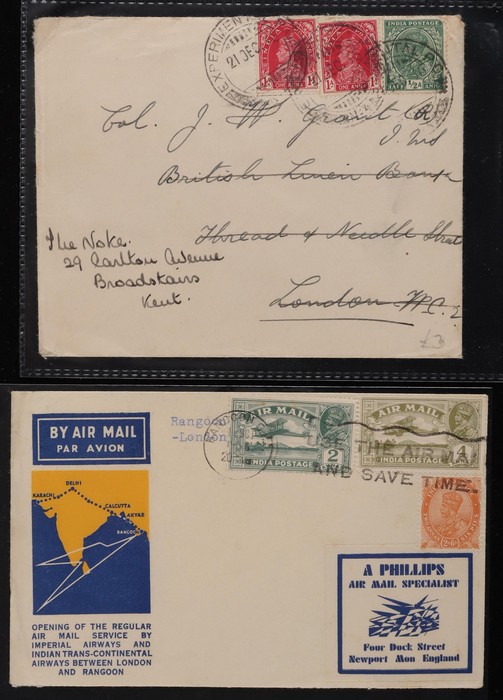 EXPERIMENT
21 DEC
ONE ANNA
ONE ANNA
INDIA POSTAGE
Col. J. W. Grant
British Linen Bank
Thread & Needle Street
London
The Noke.
29 Carlton Avenue
Broadstairs
Kent.
£3
BY AIR MAIL
PAR AVION
Rangoon
-London
AIR MAIL
INDIA POSTAGE
2
AIR MAIL
INDIA POSTAGE
4
THE AIR MAIL
AND SAVE TIME
KARACHI
DELHI
CALCUTTA
AKYAB
RANGOON
OPENING OF THE REGULAR
AIR MAIL SERVICE BY
IMPERIAL AIRWAYS AND
INDIAN TRANS-CONTINENTAL
AIRWAYS BETWEEN LONDON
AND RANGOON
A PHILLIPS
AIR MAIL SPECIALIST
Four Dock Street
Newport Mon England